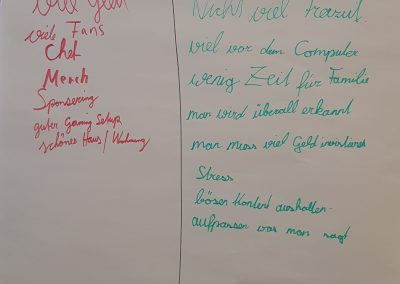 viel Geld
viele Fans
Chef
Merch
Sponsering
guter Gaming Setup
schönes Haus / Wohnung
Nicht viel
viel vor dem Computer
wenig Zeit für Familie
man wird überall erkannt
man muss viel Geld
Stress
böser Kontent aushalten
aufpassen was man sagt